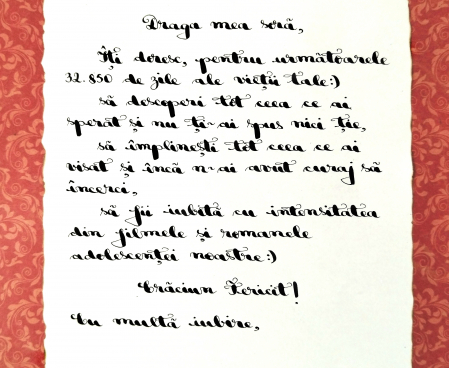 Draga mea soră,
Îți doresc, pentru următoarele
32.850 de zile ale vieții tale:)
să descoperi tot ceea ce ai
sperat și nu ți-ai spus nici ție,
să împlinești tot ceea ce ai
visat și încă n-ai avut curaj să
încerci,
să fii iubită cu intensitatea
din filmele și romanele
adolescenței noastre:)
Crăciun Fericit!
Cu multă iubire,